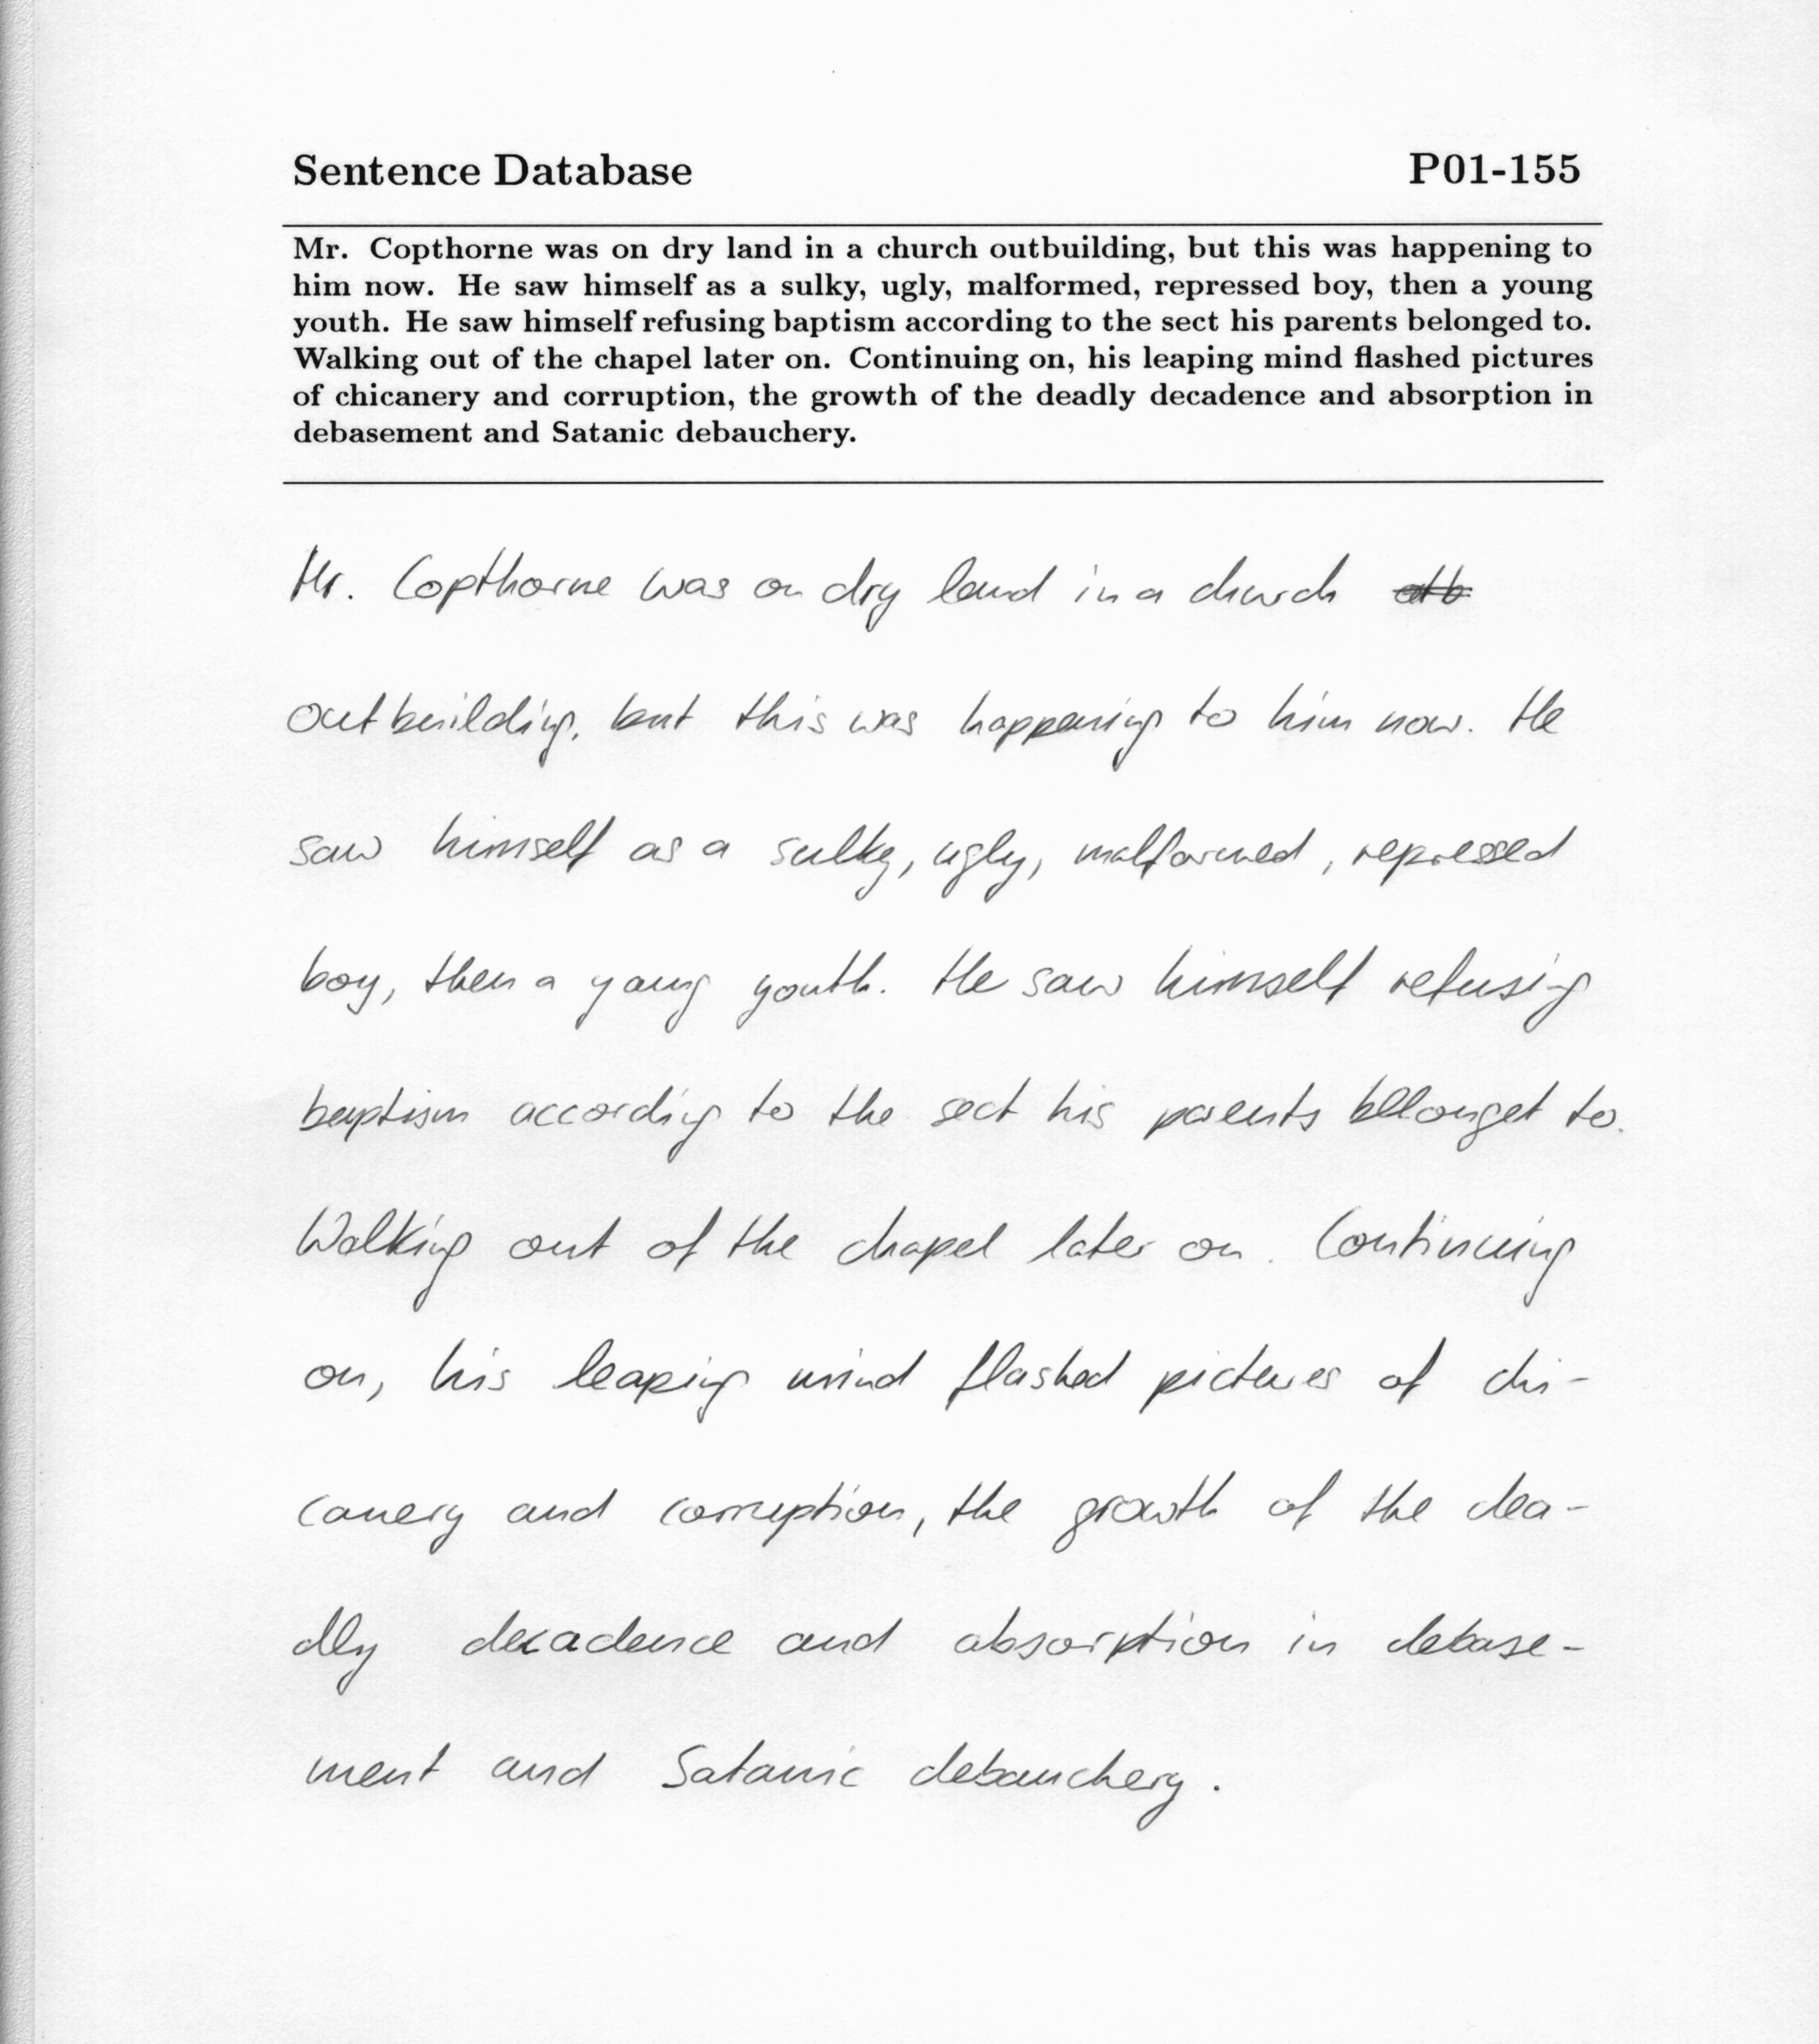 Sentence Database P01-155
Mr. Copthorne was on dry land in a church outbuilding, but this was happening to
him now. He saw himself as a sulky, ugly, malformed, repressed boy, then a young
youth. He saw himself refusing baptism according to the sect his parents belonged to.
Walking out of the chapel later on. Continuing on, his leaping mind flashed pictures
of chicanery and corruption, the growth of the deadly decadence and absorption in
debasement and Satanic debauchery.
Mr. Copthorne was on dry land in a church
outbuilding, but this was happening to him now. He
saw himself as a sulky, ugly, malformed, repressed
boy, then a young youth. He saw himself refusing
baptism according to the sect his parents bellonget to.
Walking out of the chapel later on. Continuing
on, his leaping mind flashed pictures of chi-
canery and corruption, the growth of the dea-
dly decadence and absorption in debase-
ment and Satanic debauchery.